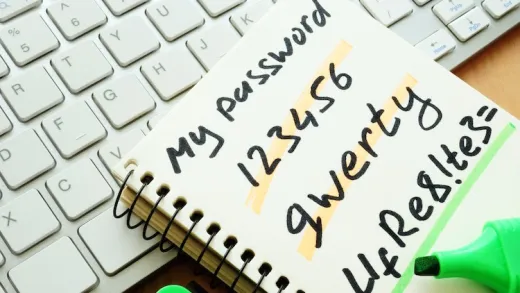 My password
123456
qwerty
4fRe8!te3=
%
5
6
R
T
Y
U
F
G
H
J
K
D
C
V
X